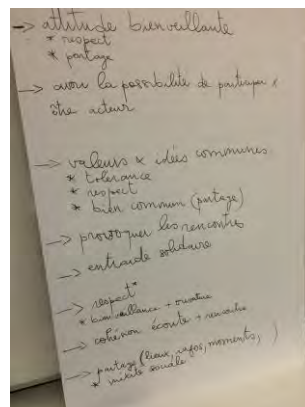 -> attitude bienveillante
* respect
* partage
-> avoir la possibilité de participer &
être acteur
-> valeurs & idées communes
* tolérance
* respect
* bien commun (partage)
-> provoquer les rencontres
-> entraide solidaire
-> respect
* bienveillance +
-> cohésion écoute + rencontre
-> partage (lieux, infos, moments, )
* mixité sociale